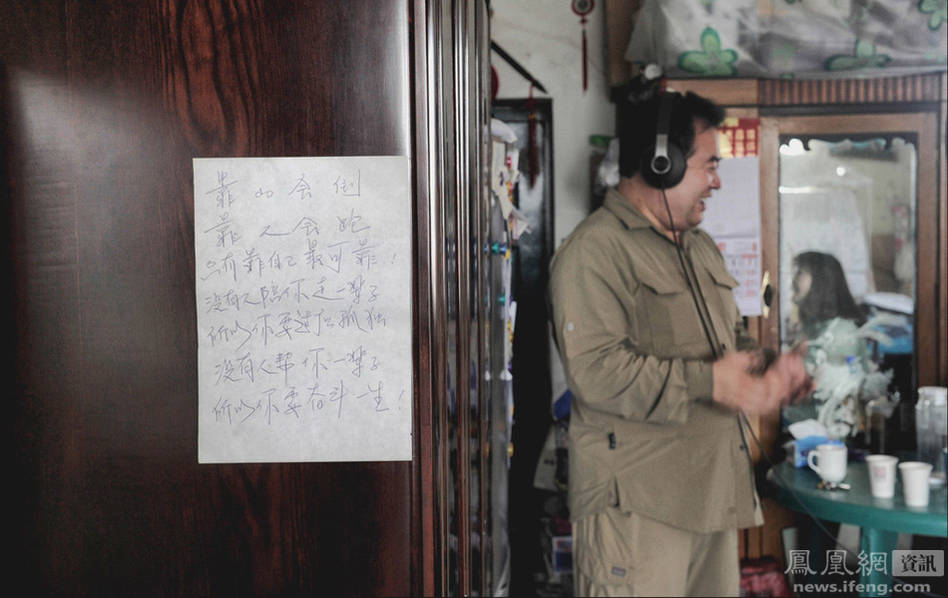 靠山会倒
靠人会跑
只有靠自己最可靠！
没有人陪你走一辈子
所以你要适应孤独
没有人帮你一辈子
所以你要奋斗一生！
鳳凰網 資訊
news.ifeng.com